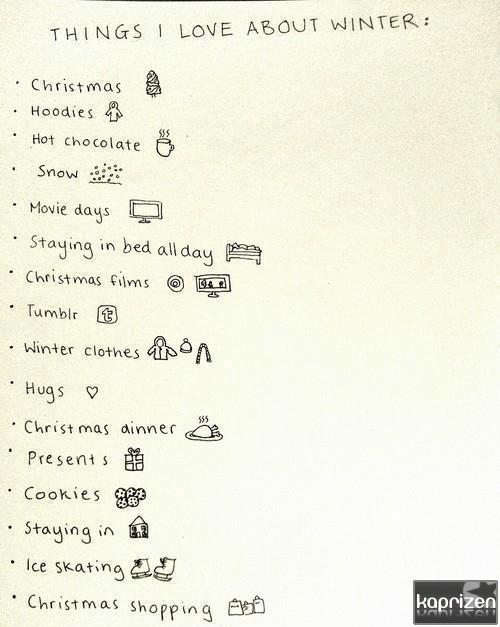 THINGS I LOVE ABOUT WINTER:
· Christmas
· Hoodies
· Hot chocolate
· Snow
· Movie days
· Staying in bed all day
· Christmas films
· Tumblr t
· Winter clothes
· Hugs
· Christmas dinner
· Presents
· Cookies
· Staying in
· Ice skating
· Christmas shopping
kaprizen